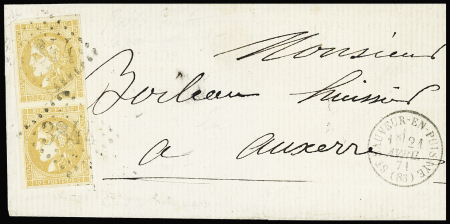 Monsieur
Boileau huissier
a auxerre
ST SAUVEUR-EN-PUISAYE (83)
21
AVRIL
71